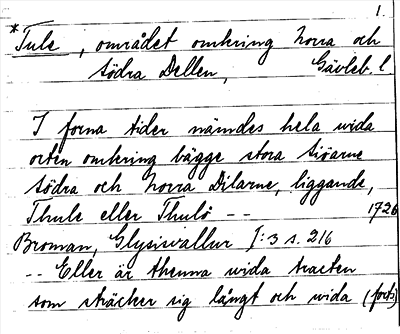 1.
*Tule, området omkring Norra och
södra Dellen, Gävleb. l
I forna tider nämdes hela wida
orten omkring bägge stora siöarne
södra och Norra Dilarne, liggande,
Thule eller Thulö -- 1726
Broman, Glysisvallur I:3 s. 216
-- Eller är thenna wida tracten
som sträcker sig långt och wida (forts)